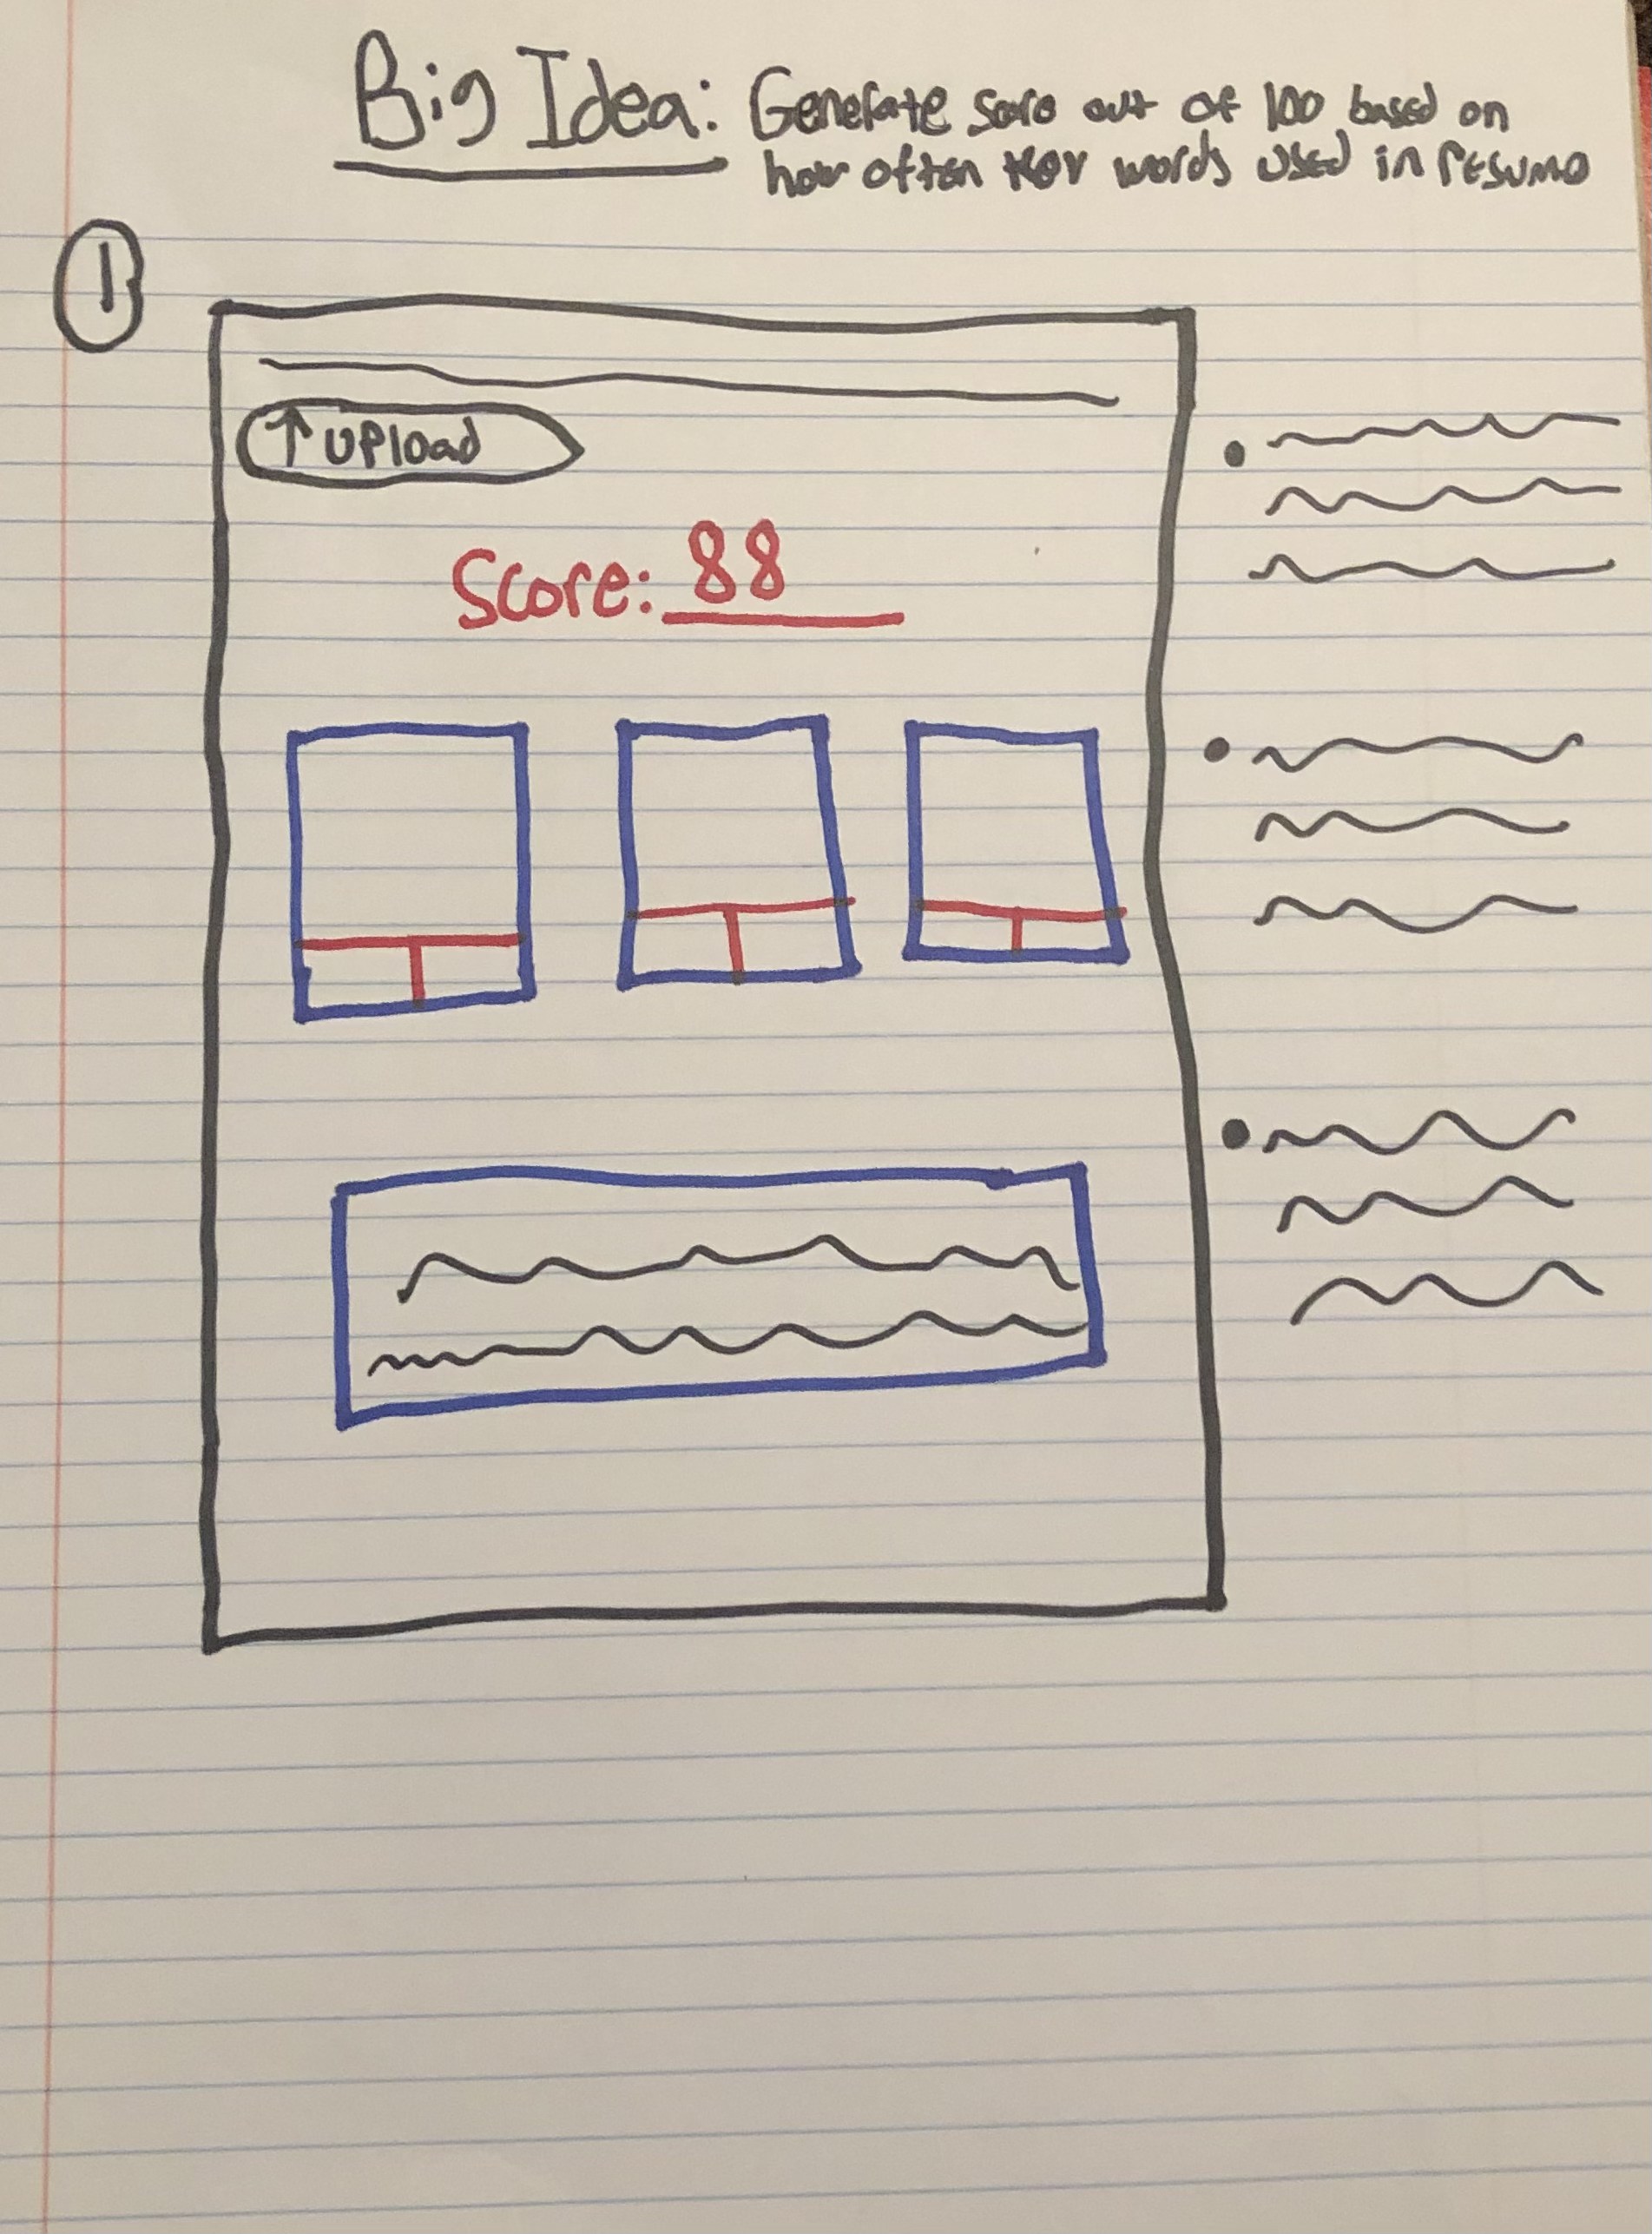 Big Idea: Generate score out of 100 based on
how often key words used in resume
1
↑ Upload
Score: 88